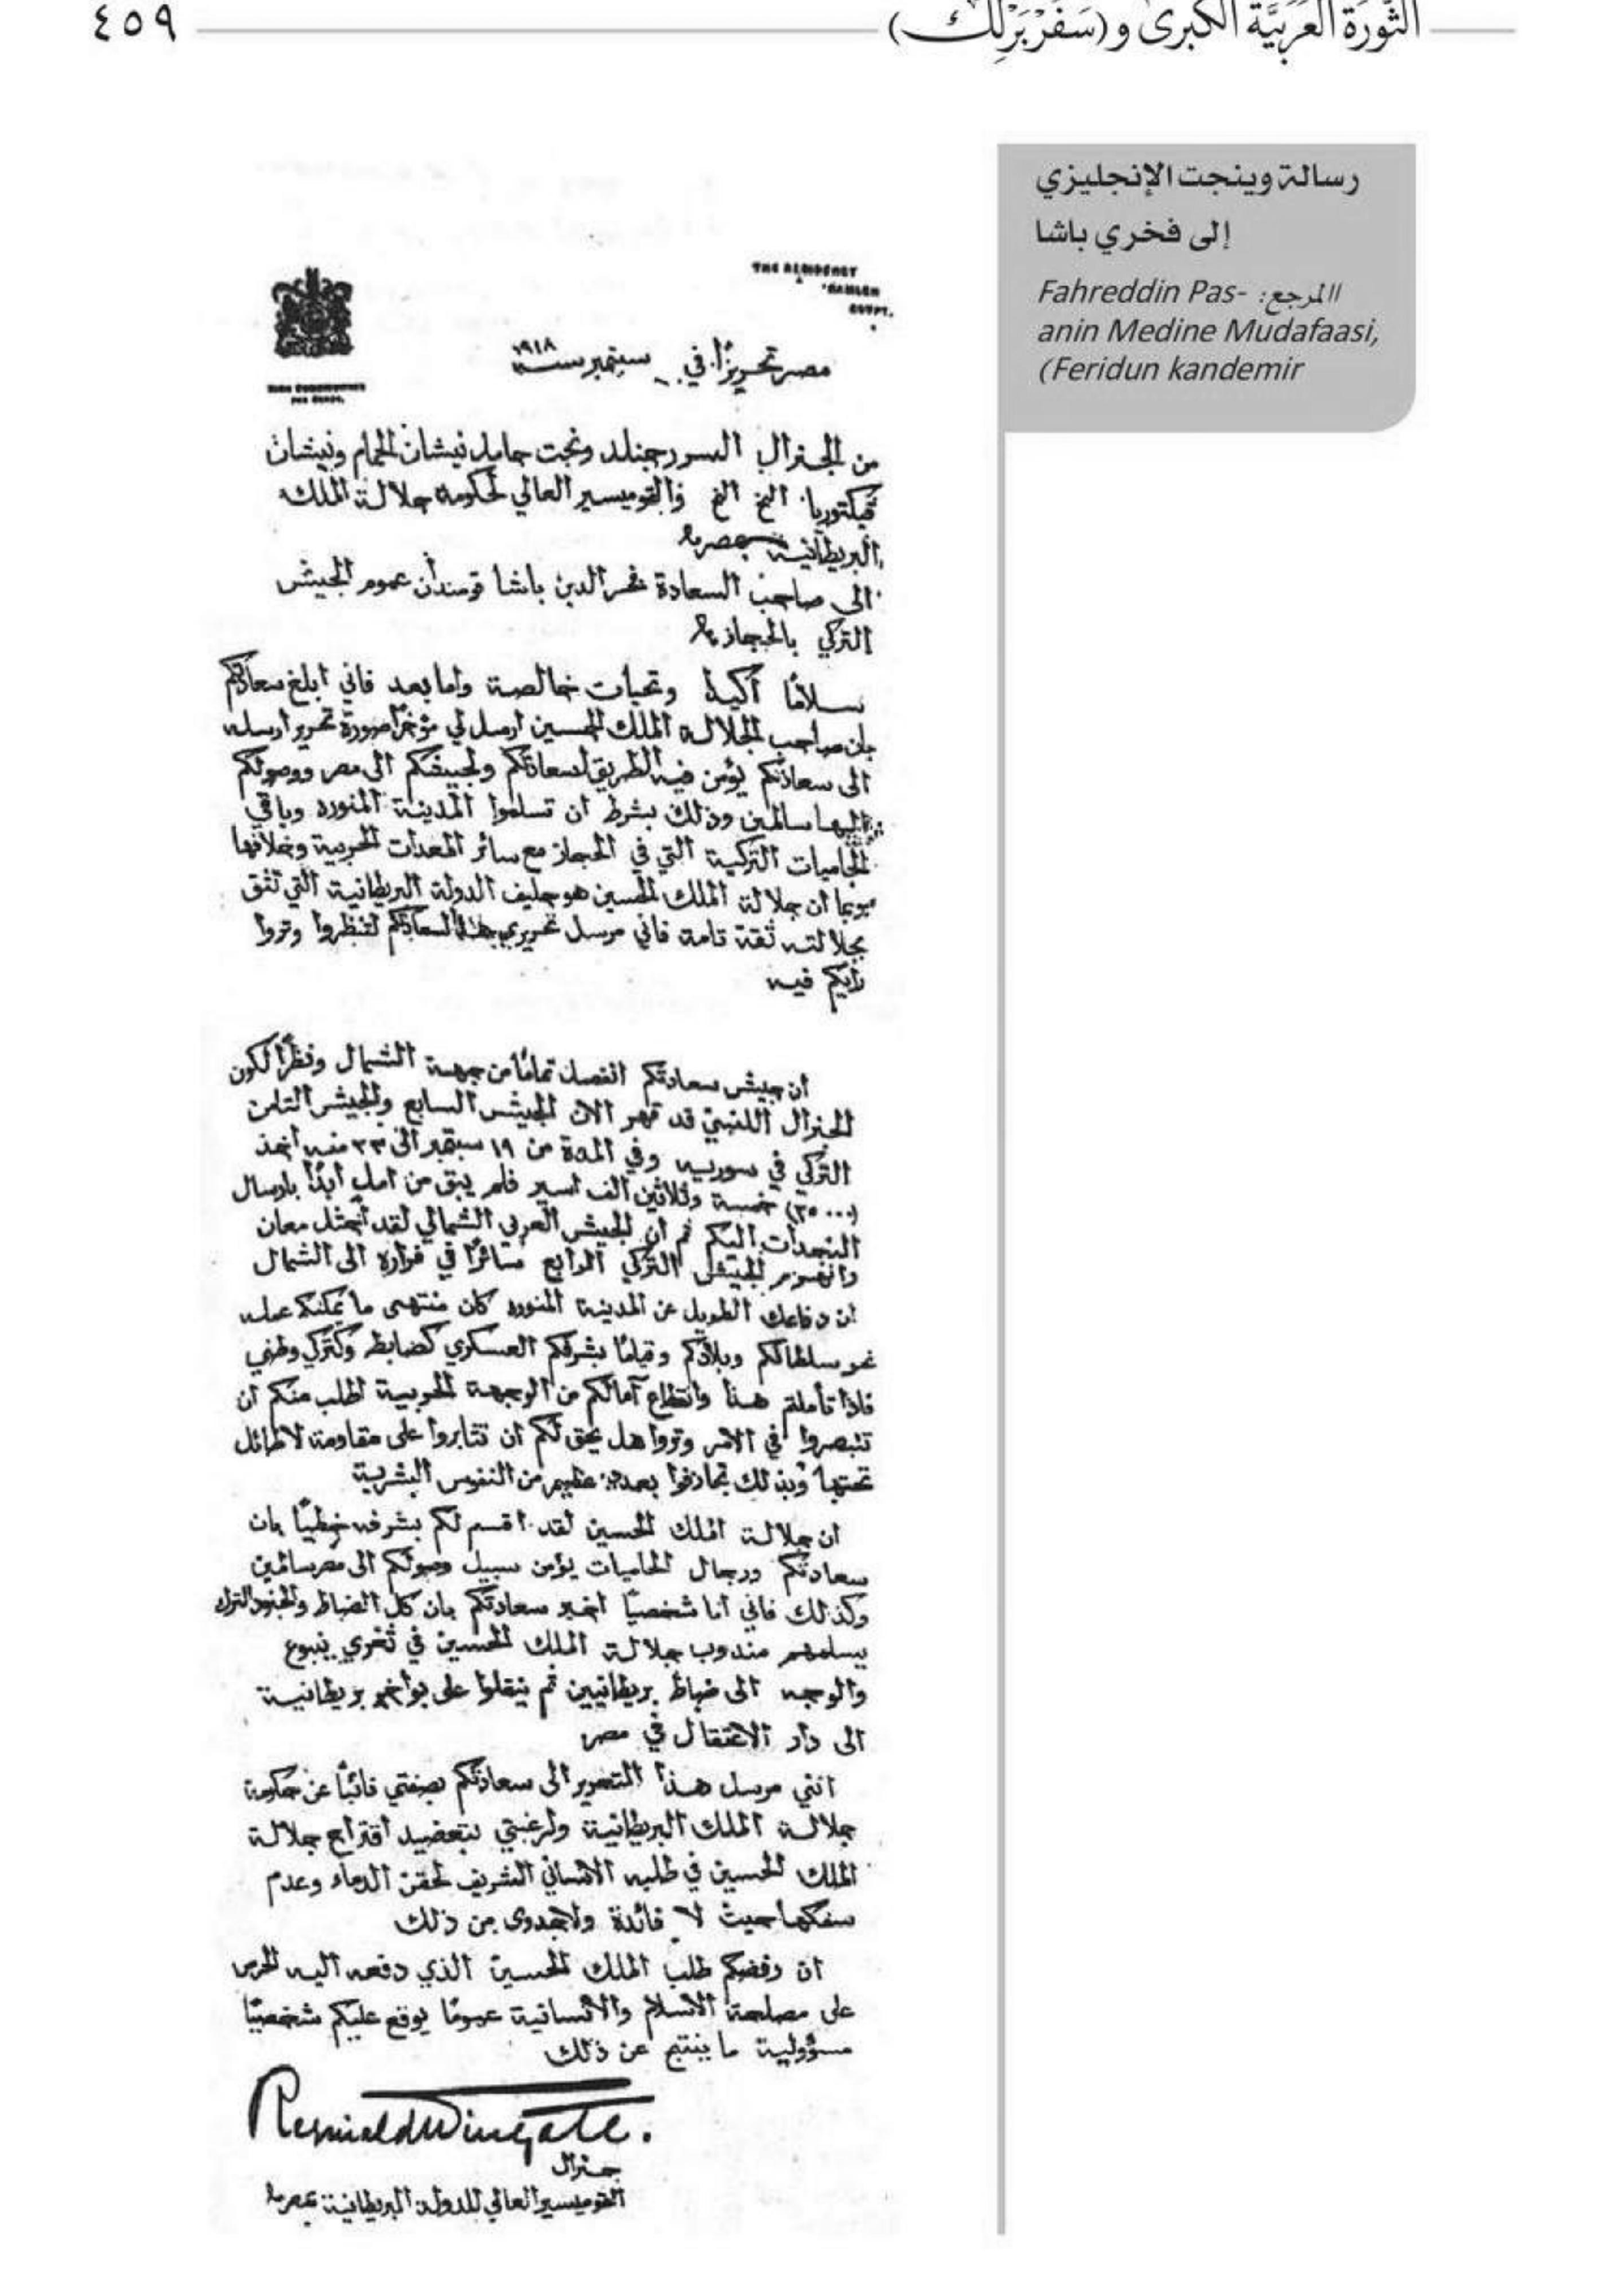 الثَّورَة العَرَبيَّة الكبرى و(سَفَرْبَرْلِك)
٤٥٩
رسالة وينجت الإنجليزي
إلى فخري باشا
المرجع: Fahreddin Pas-
anin Medine Mudafaasi,
(Feridun kandemir
THE RESIDENCY
RAMLEH
EGYPT.
مصر تحريرًا في سبتمبر سنة ١٩١٨
من الجنرال السر رجنلد ونجت حامل نيشان الحمام ونيشان
فيكتوريا الخ الخ والقوميسير العالي لحكومة جلالة الملك
البريطانية بمصر
الى صاحب السعادة فخر الدين باشا قومندان عموم الجيش
التركي بالحجاز
سلامًا أكيدا وتحيات خالصة واما بعد فاني ابلغ سعادتكم
بان صاحب الجلالة الملك الحسين ارسل لي مؤخرًا صورة تحرير أرسله
الى سعادتكم يؤمن فيه الطريق لسعادتكم ولجيشكم الى مصر ووصولكم
اليها سالمين وذلك بشرط ان تسلموا المدينة المنوره وباقي
الحاميات التركية التي في الحجاز مع سائر المعدات الحربية وخلافها
وبما ان جلالة الملك الحسين هو حليف الدولة البريطانية التي تثق
بجلالته ثقة تامة فاني مرسل تحريري هذا لسعادتكم لتنظروا وتروا
رأيكم فيه
ان جيش سعادتكم انفصل تمامًا من جهة الشمال ونظرًا لكون
الجنرال اللنبي قد قهر الان الجيش السابع والجيش الثامن
التركي في سوريه وفي المدة من ١٩ سبتمبر الى ٢٣ منه اخذ
(٣٥٠٠٠) خمسة وثلاثين الف اسير فلم يبق من امل أبدًا بارسال
النجدات اليكم ثم ان الجيش العربي الشمالي لقد احتل معان
وانهزم الجيش التركي الرابع سائرًا في فراره الى الشمال
ان دفاعك الطويل عن المدينة المنوره كان منتهى ما يمكنك عمله
نحو سلطانكم وبلادكم وقيامًا بشرفكم العسكري كضابط وكتركي وطني
فاذا تأملتم هذا وانقطاع آمالكم من الوجهة الحربية اطلب منكم ان
تتبصروا في الامر وتروا هل يحق لكم ان تثابروا على مقاومة لا طائل
تحتها وبذلك تجازفوا بعدد عظيم من النفوس البشرية
ان جلالة الملك الحسين لقد اقسم لكم بشرفه خطيًا بان
سعادتكم ورجال الحاميات يؤمن سبيل وصولكم الى مصر سالمين
وكذلك فاني انا شخصيًا اخبر سعادتكم بان كل الضباط والجنود الترك
يسلمهم مندوب جلالة الملك الحسين في ثغري ينبوع
والوجه الى ضباط بريطانيين ثم ينقلوا على بواخر بريطانية
الى دار الاعتقال في مصر
انني مرسل هذا التحرير الى سعادتكم بصفتي نائبًا عن حكومة
جلالة الملك البريطانية ولرغبتي بتعضيد اقتراح جلالة
الملك الحسين في طلبه الانساني الشريف لحقن الدماء وعدم
سفكها حيث لا فائدة ولا جدوى من ذلك
ان رفضكم طلب الملك الحسين الذي دفعه اليه الحرص
على مصلحة الاسلام والانسانية عمومًا يوقع عليكم شخصيًا
مسؤولية ما ينتج عن ذلك
Reginald Wingate.
جنرال
القوميسير العالي للدولة البريطانية بمصر